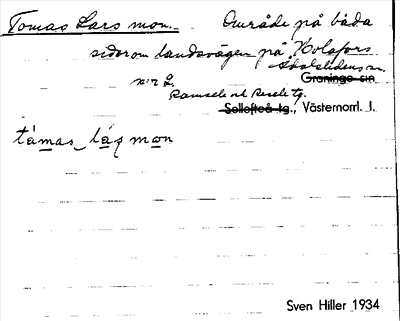 Tomas Lars mon. Område på båda
sidor om landsvägen på Holafors
Ådalslidens sn
Graninge sn
n:r 2.
Ramsele och Resele tg.
Sollefteå tg., Västernorrl. l.
támas_láʒ mon
Sven Hiller 1934